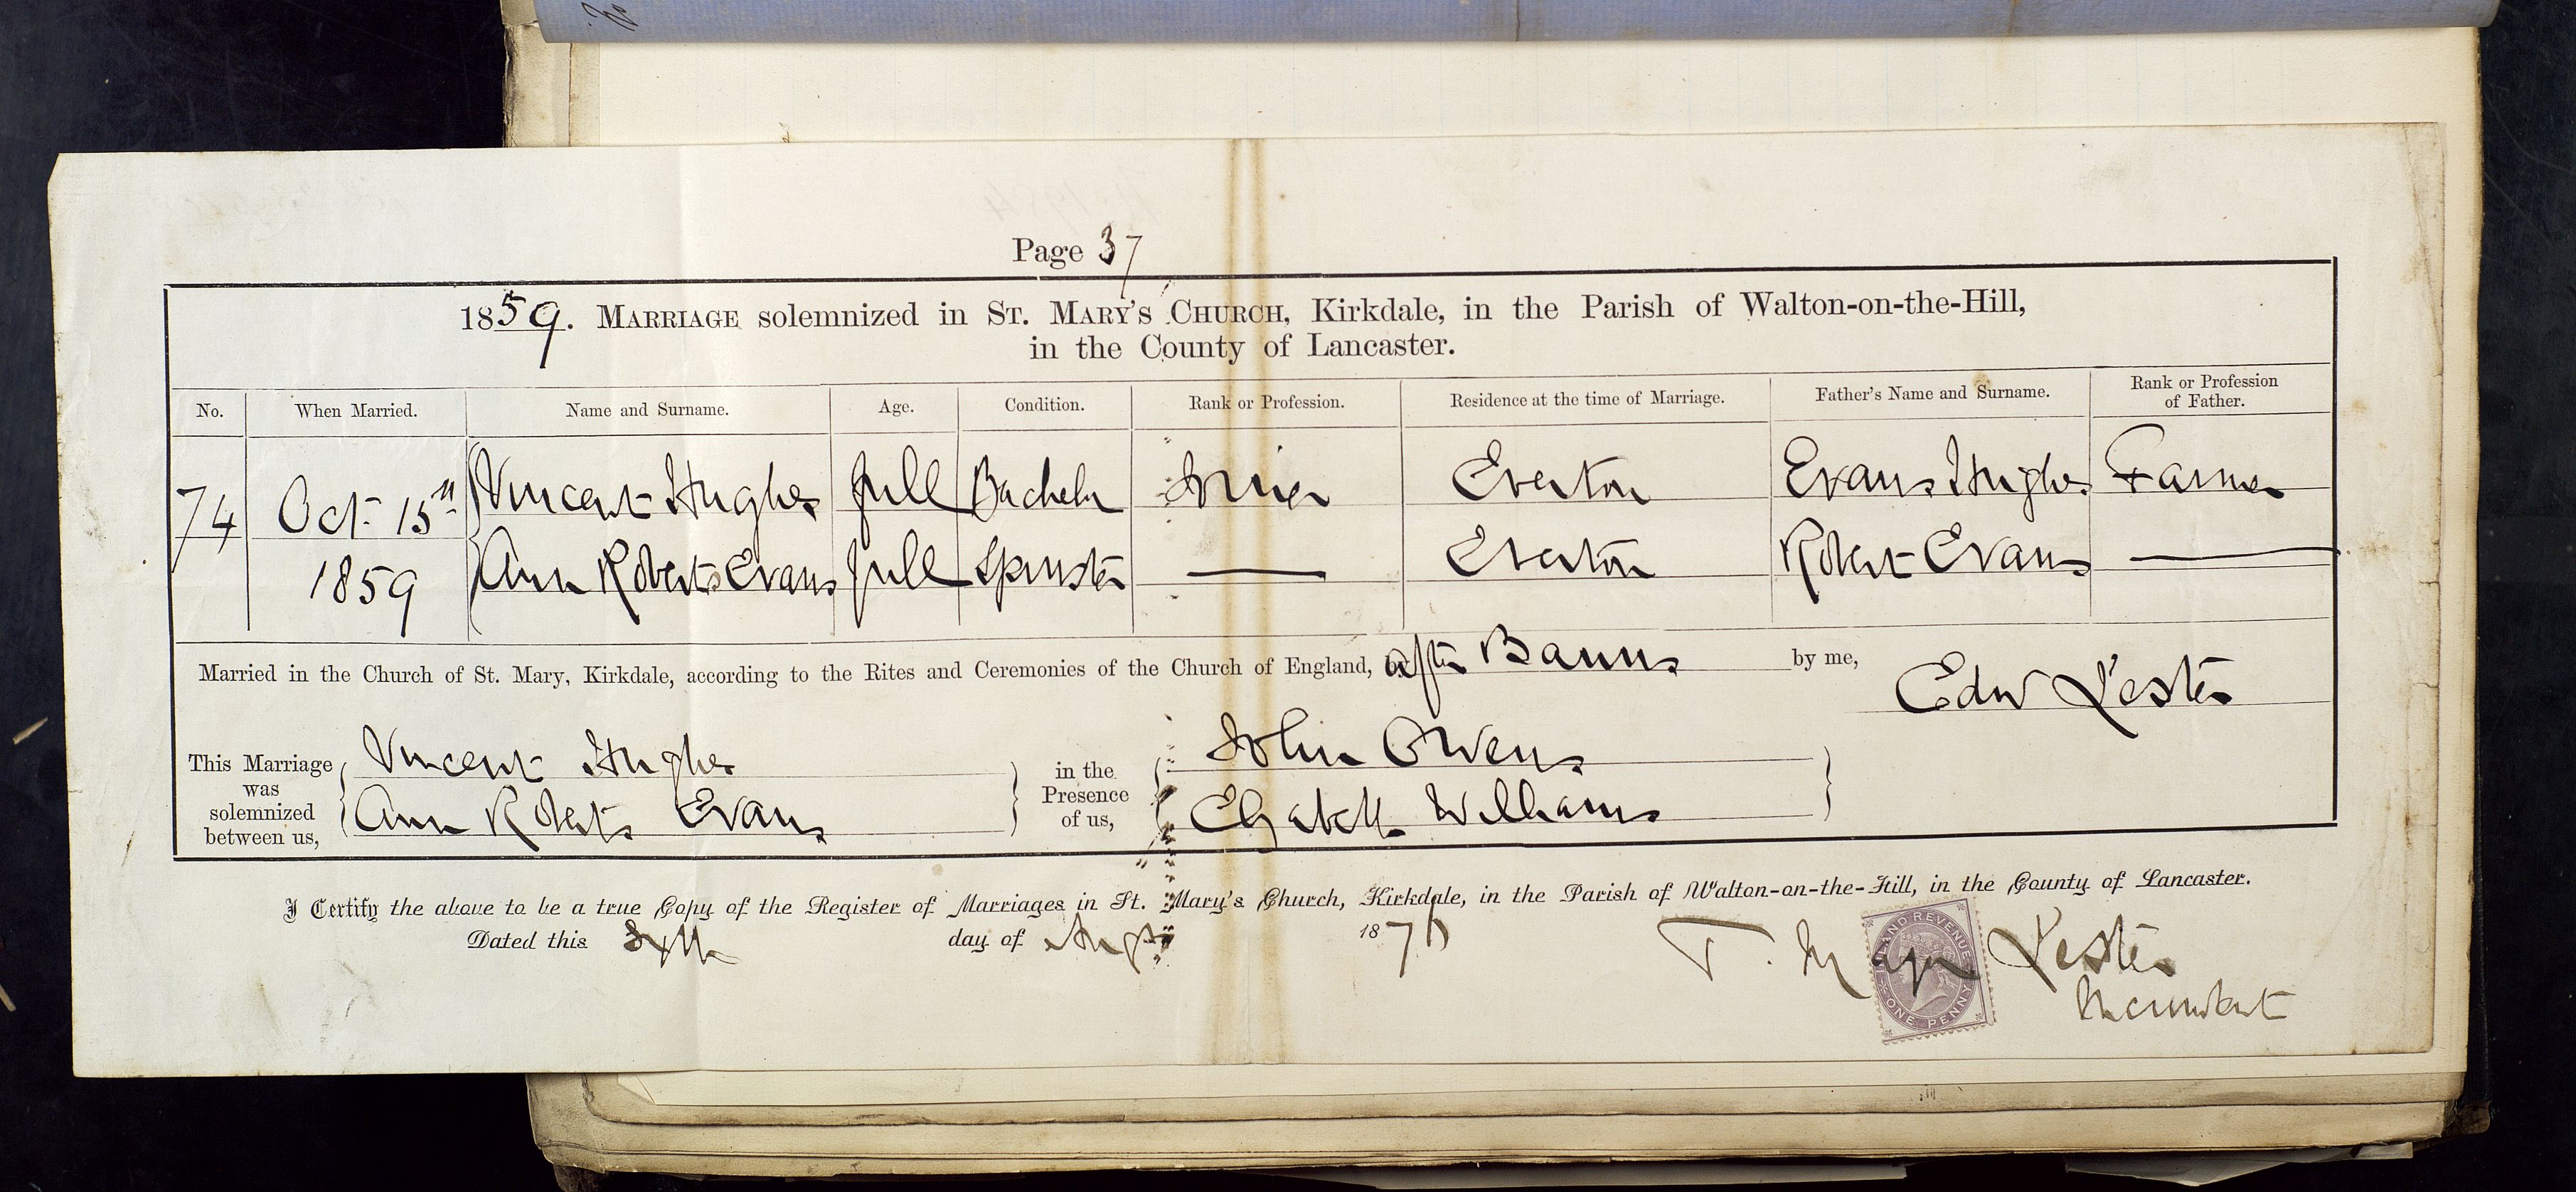 Page 37
1859. MARRIAGE solemnized in ST. MARY'S CHURCH, Kirkdale, in the Parish of Walton-on-the-Hill,
in the County of Lancaster.
No. When Married. Name and Surname. Age. Condition. Rank or Profession. Residence at the time of Marriage. Father's Name and Surname. Rank or Profession of Father.
74 Oct 15th Vincent Hughes full Bachelor Joiner Everton Evans Hughes Farmer
1859 Ann Roberts Evans full Spinster — Everton Robert Evans —
Married in the Church of St. Mary, Kirkdale, according to the Rites and Ceremonies of the Church of England, after Banns by me,
Edw Lester
This Marriage was solemnized between us,
Vincent Hughes
Ann Roberts Evans
in the Presence of us,
John Owens
Elizabeth Williams
I Certify the above to be a true Copy of the Register of Marriages in St. Mary's Church, Kirkdale, in the Parish of Walton-on-the-Hill, in the County of Lancaster.
Dated this Sixth day of Augt 187
T. Major Lester
Incumbent
INLAND REVENUE
ONE PENNY